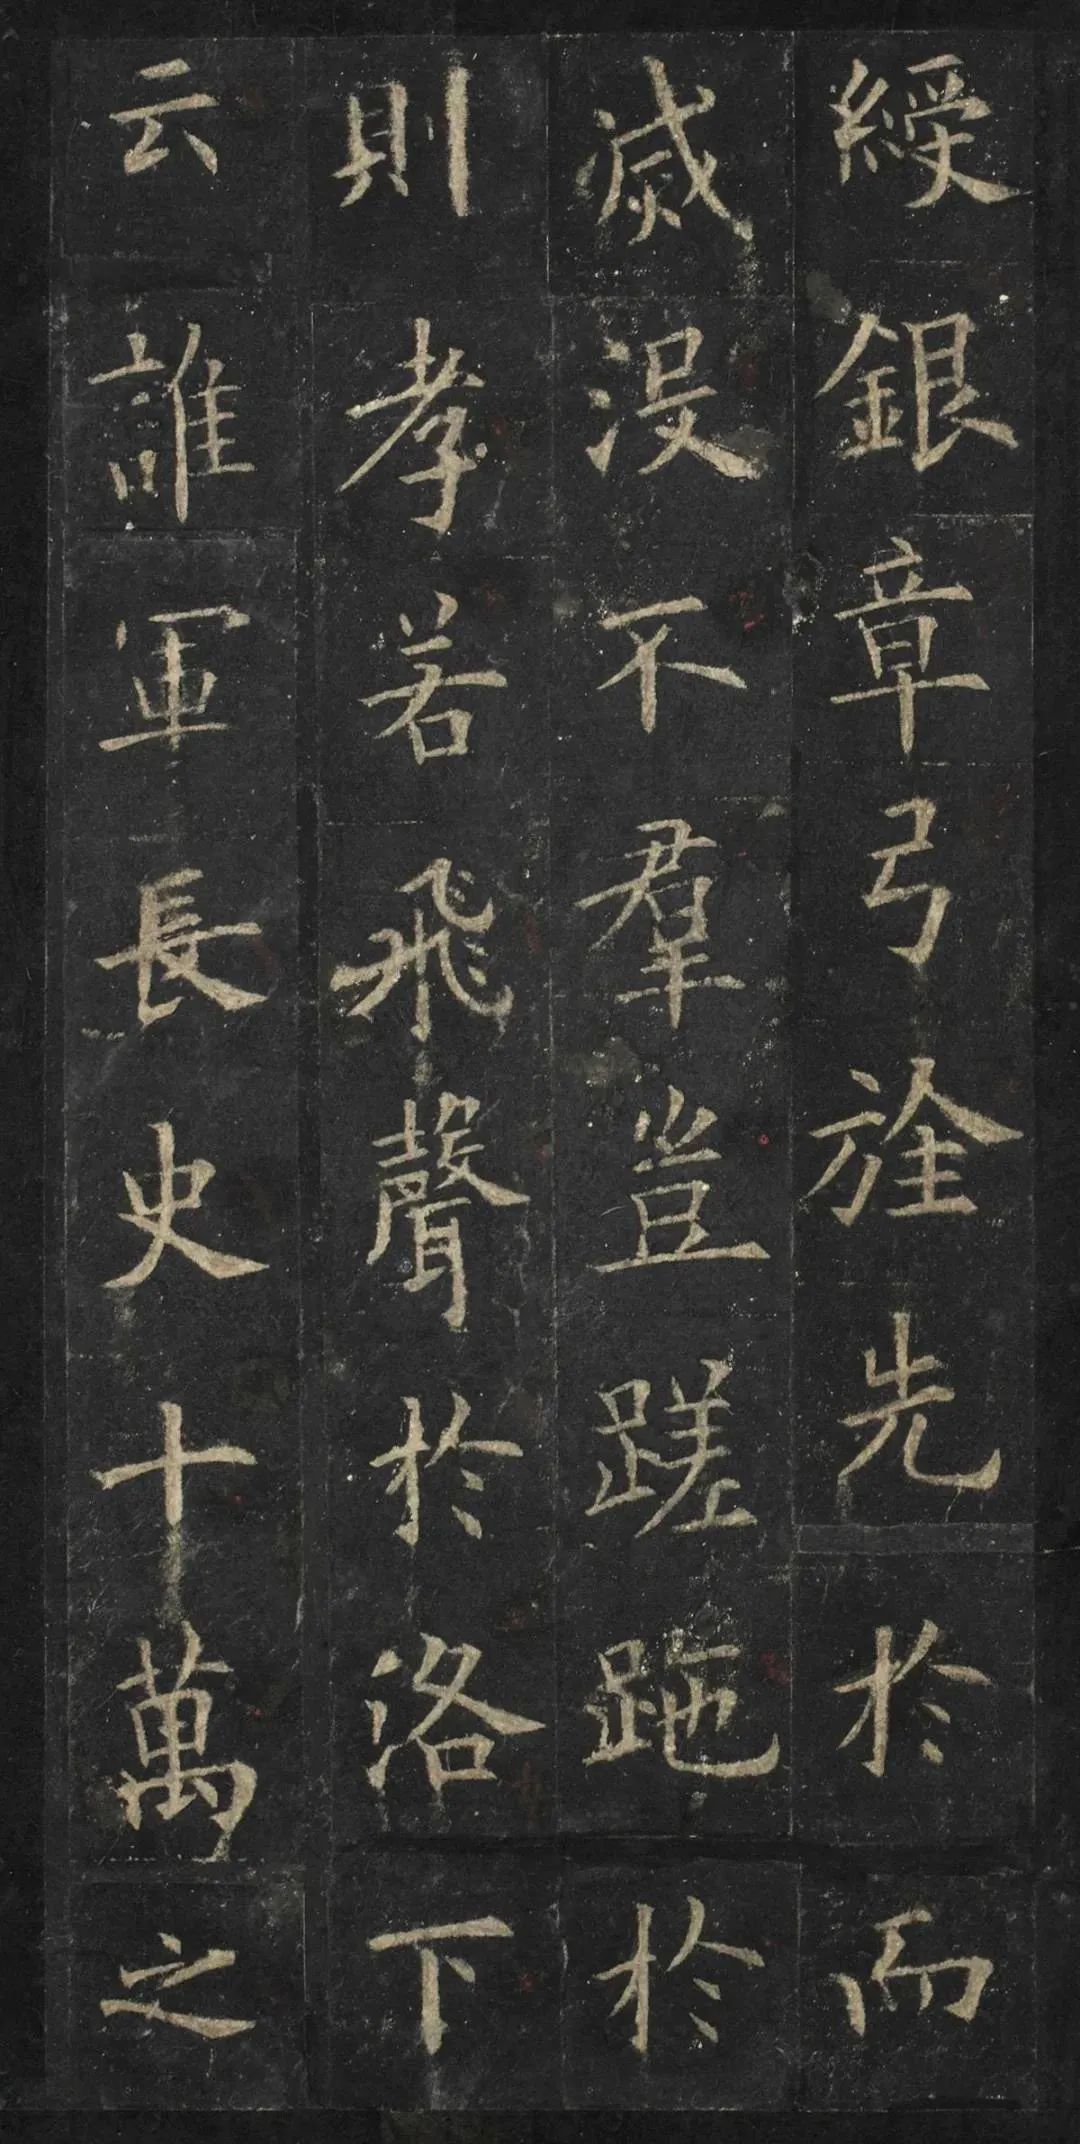 綬銀章弓旌先於而
滅没不羣豈蹉跎於
則孝若飛聲於洛下
云誰軍長史十萬之